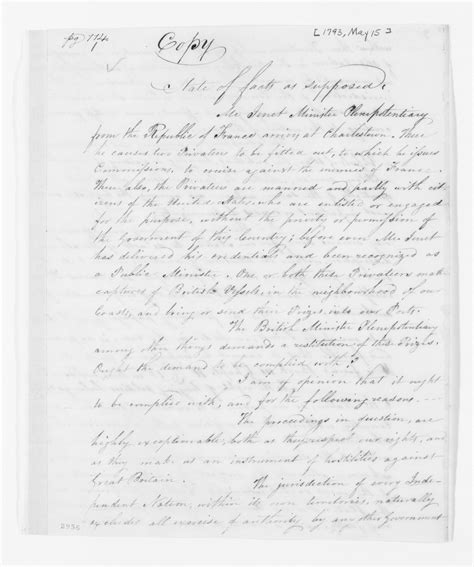 pg 114
[1793, May 15]
Copy
State of facts as supposed.
Mr Genet Minister Plenipotentiary
from the Republic of France arrives at Charlestown. There
he causes two Privateers to be fitted out, to which he issues
Commissions, to cruise against the enemies of France.
There also, the Privateers are manned and partly with cit
izens of the United States, who are enlisted or engaged
for the purpose, without the privity or permission of
the Government of this Country; before even Mr Genet
has delivered his credentials and been recognized as
a Public Minister. One or both these Privateers make
captures of British Vessels, in the neighbourhood of our
Coasts, and bring or send their Prizes into our Ports.
The British Minister Plenipotentiary
among other things demands a restitution of these Prizes.
Ought the demand to be complied with?
I am of opinion that it ought
to be complied with, and for the following reasons.
The proceedings in question, are
highly exceptionable, both as they respect our rights, and
as they make us an instrument of hostilities against
Great Britain.
The jurisdiction of every Inde-
pendent Nation, within its own territories, naturally
excludes all exercise of authority, by any other Government